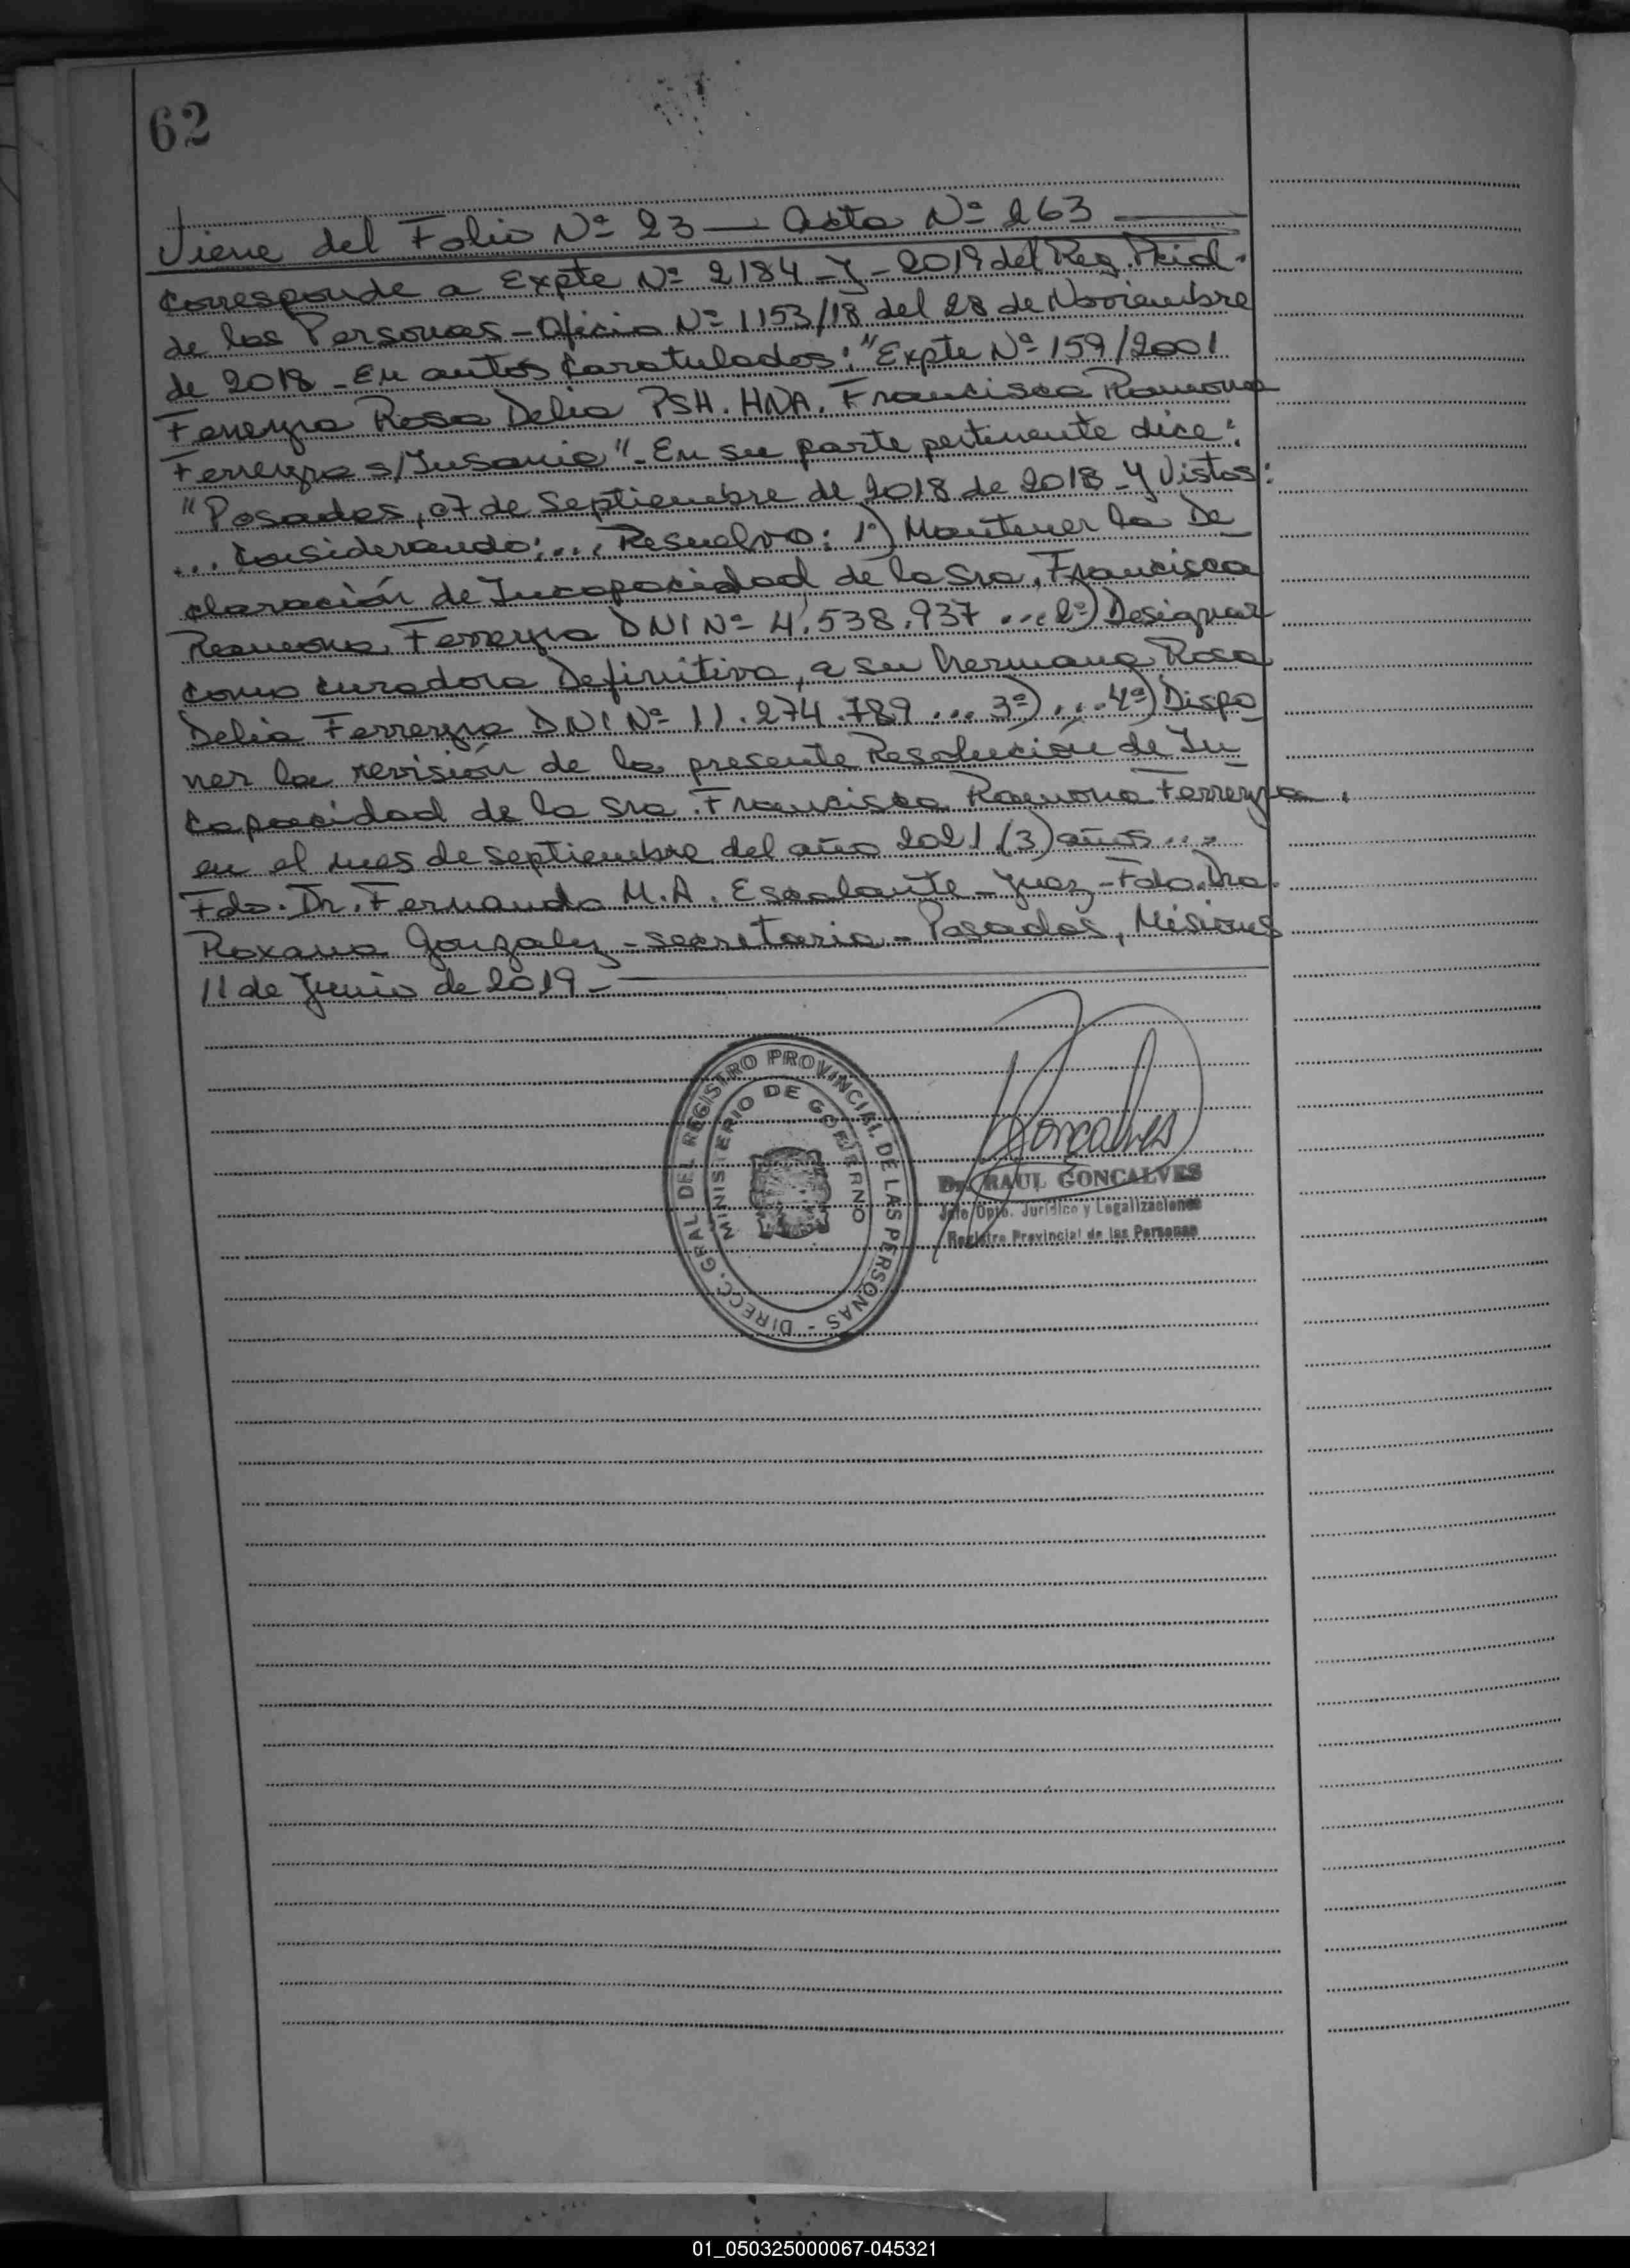 62
Viene del Folio Nº 23 — Acta Nº 263
Corresponde a Expte Nº 2184-J-2019 del Reg. Prcial.
de las Personas - Oficio Nº 1153/18 del 28 de Noviembre
de 2018 - En autos Caratulados: "Expte Nº 159/2001
Ferreyra Rosa Delia PSH. HNA. Francisca Ramona
Ferreyra s/Insania" - En su parte pertinente dice:
"Posadas, 07 de Septiembre de 2018 de 2018 - Y Vistos:
... Considerando:... Resuelvo: 1º) Mantener la De
claración de Incapacidad de la Sra. Francisca
Ramona Ferreyra DNI Nº 4.538.937 ... 2º) Designar
como curadora Definitiva, a su hermana Rosa
Delia Ferreyra DNI Nº 11.274.789 ... 3º) ... 4º) Dispo
ner la revisión de la presente Resolución de In
capacidad de la Sra. Francisca Ramona Ferreyra.
en el mes de septiembre del año 2021 (3) años...
Fdo. Dr. Fernando M.A. Escalante - Juez - Fdo. Dra.
Roxana Gonzalez - secretaria - Posadas, Misiones
11 de Junio de 2019 -
DIRECC. GRAL. DEL REGISTRO PROVINCIAL DE LAS PERSONAS -
MINISTERIO DE GOBIERNO
Goncalves
Dr. RAUL GONCALVES
Jefe Dpto. Jurídico y Legalizaciones
Registro Provincial de las Personas
01_050325000067-045321